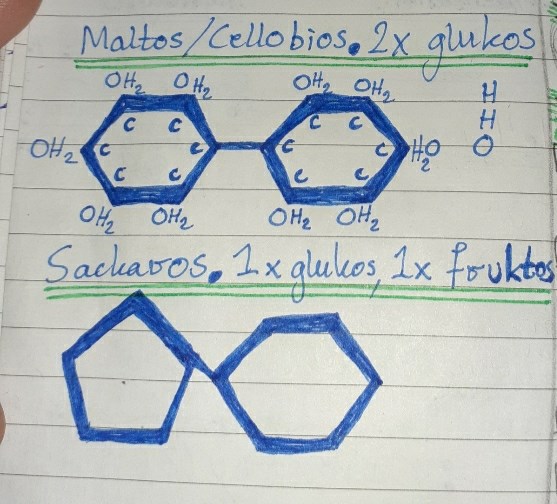 Maltos/Cellobios. 2x glukos
OH₂ OH₂ OH₂ OH₂ H
C C C C H
OH₂ C C C C H₂O O
C C C C
OH₂ OH₂ OH₂ OH₂
Sackaros. 1x glukos, 1x fruktos